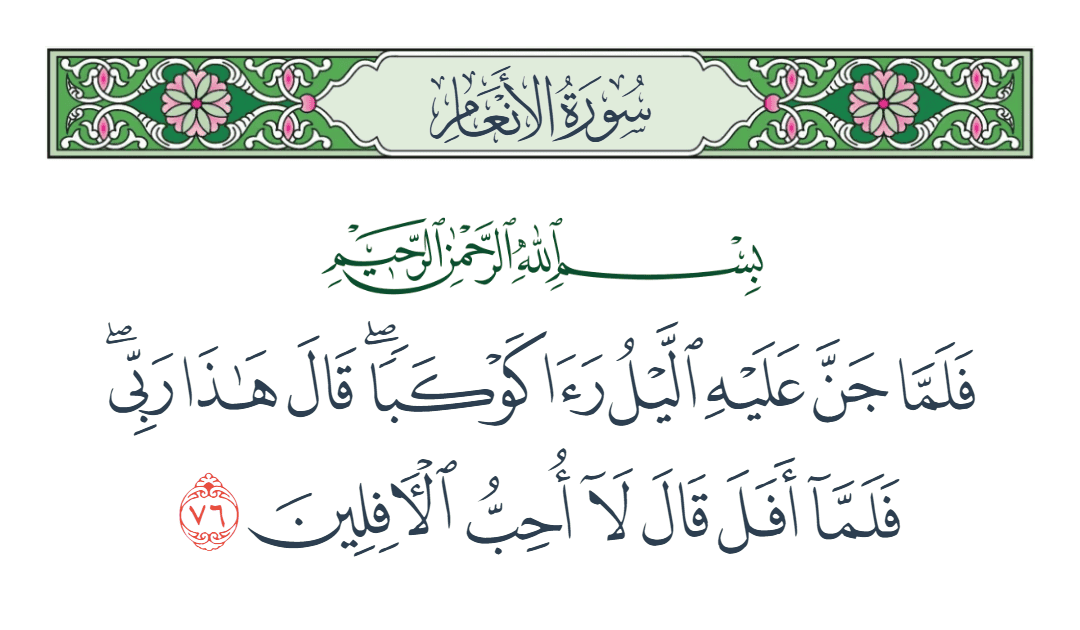 سُورَةُ الأَنْعَامِ
بِسْمِ ٱللَّهِ ٱلرَّحْمَٰنِ ٱلرَّحِيمِ
فَلَمَّا جَنَّ عَلَيْهِ ٱلَّيْلُ رَءَا كَوْكَبًۭا ۖ قَالَ هَـٰذَا رَبِّى ۖ
فَلَمَّآ أَفَلَ قَالَ لَآ أُحِبُّ ٱلْـَٔافِلِينَ ٧٦